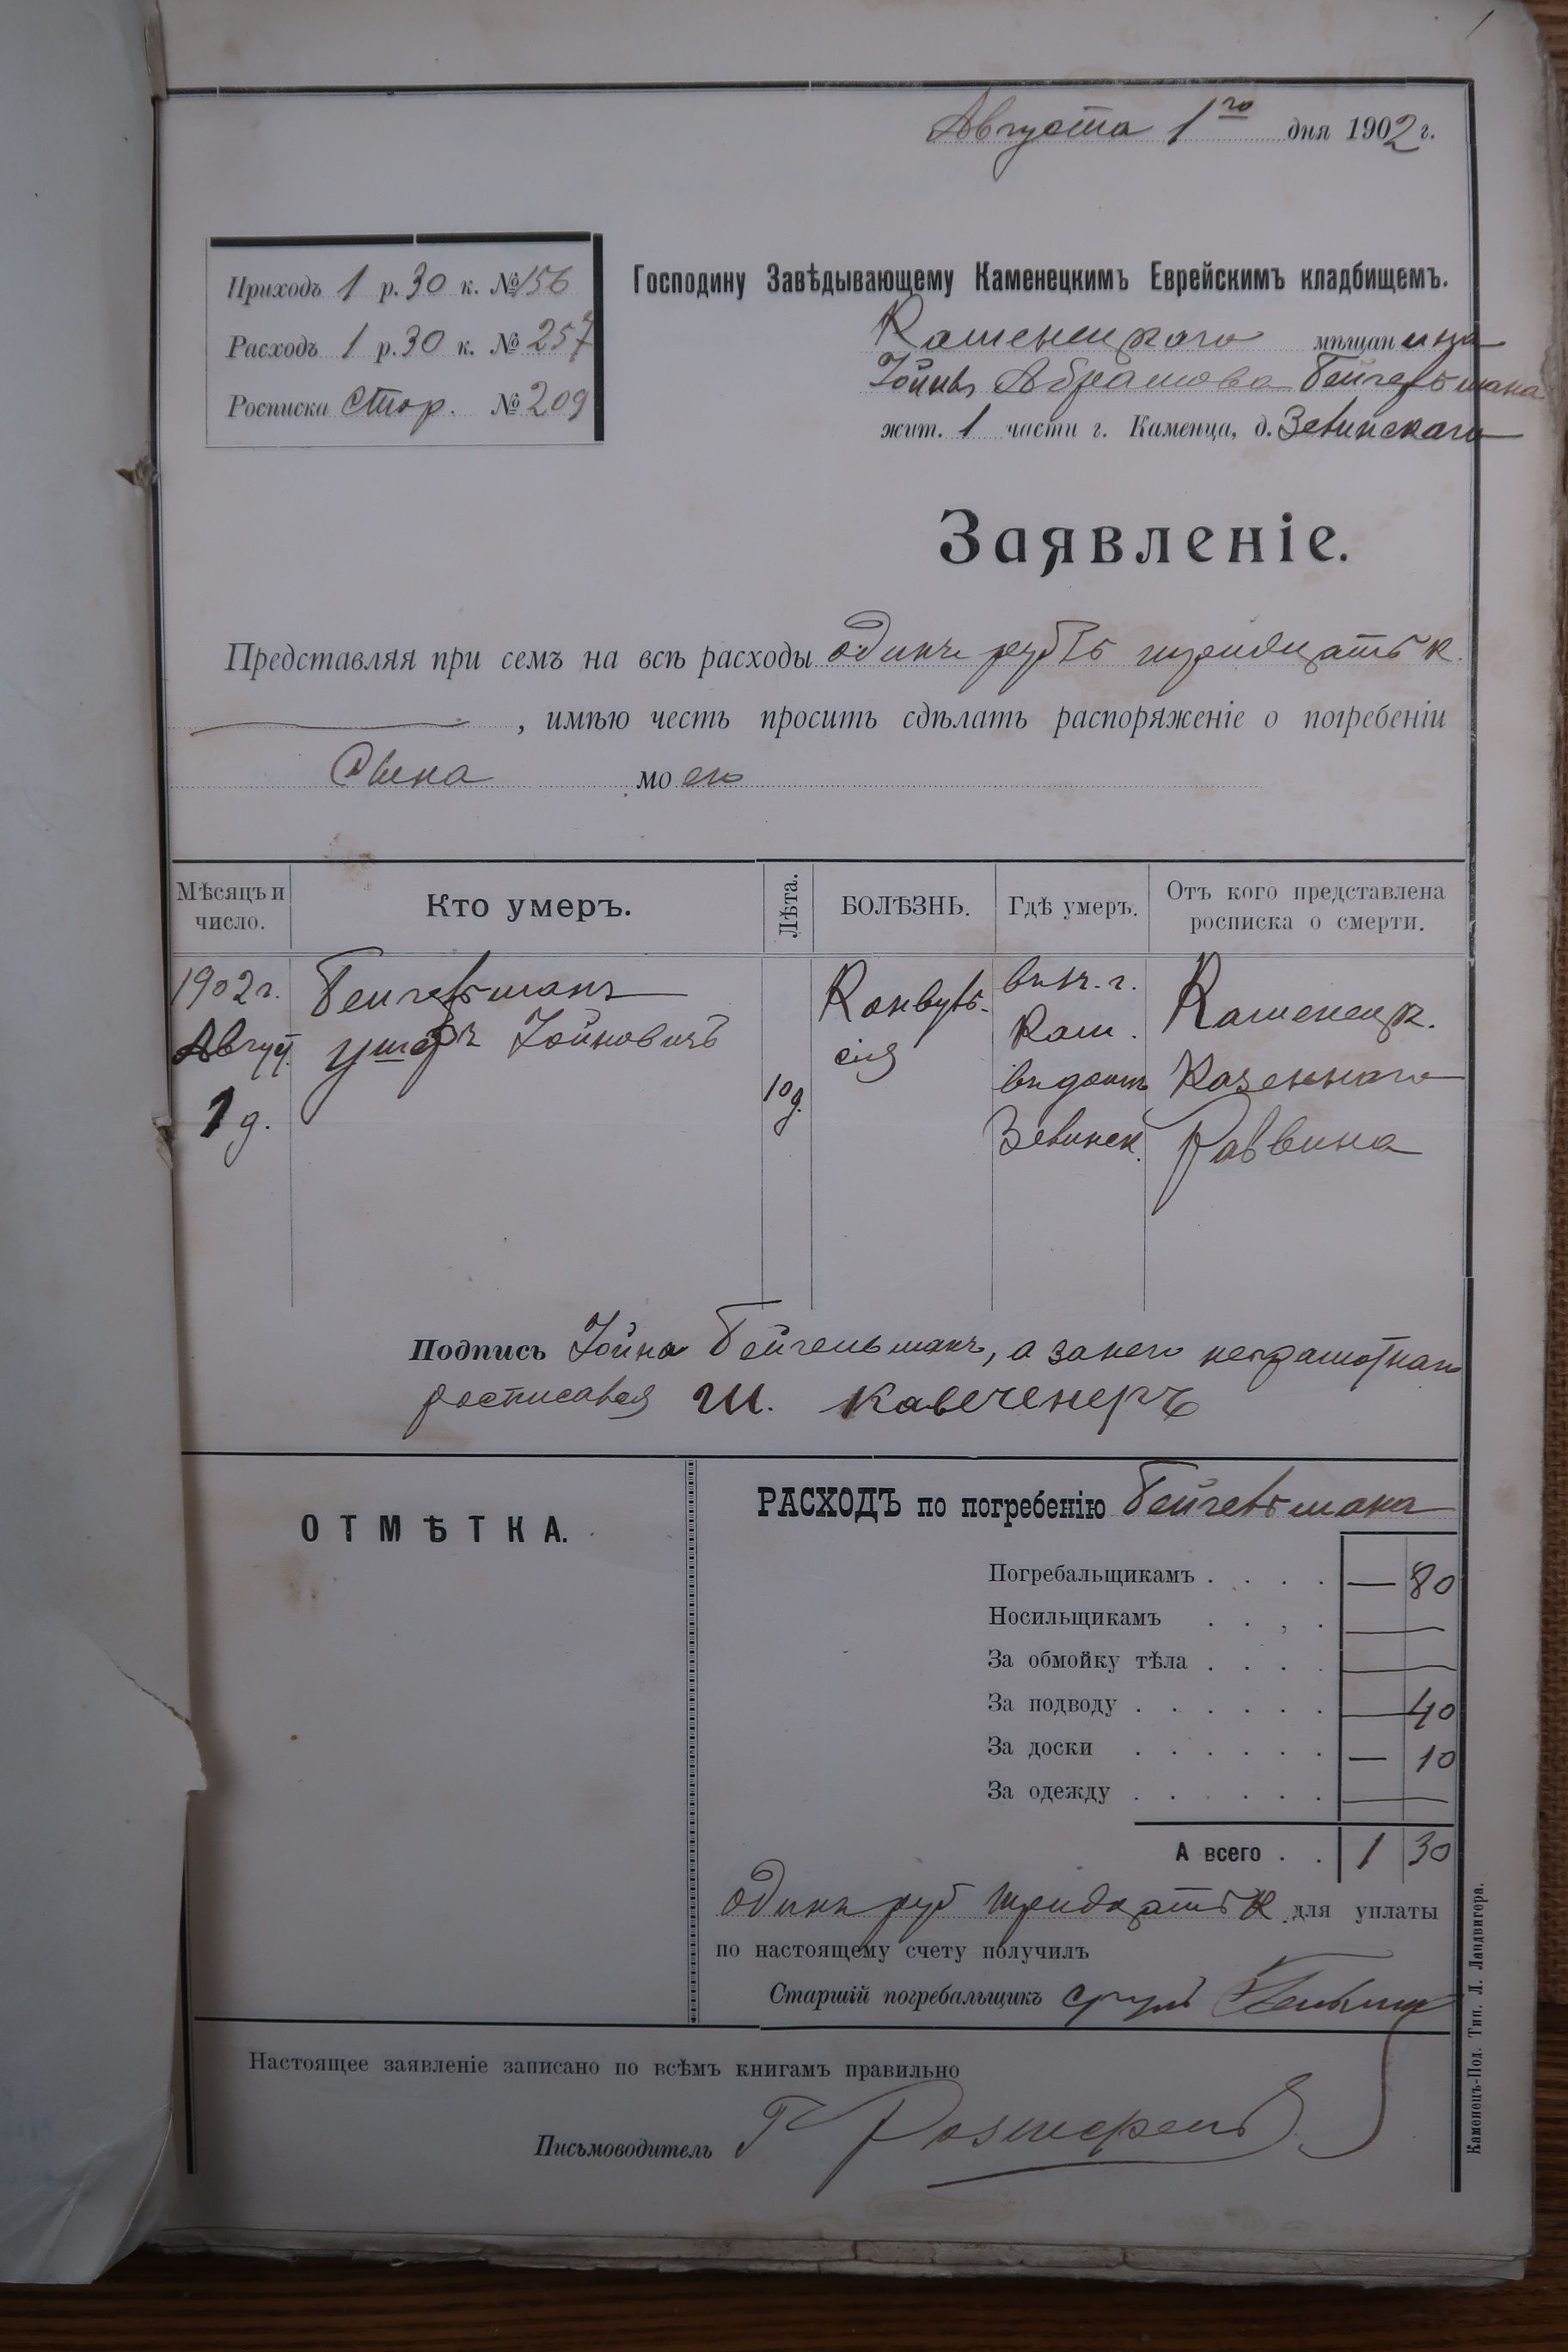 1
Августа 1го дня 1902 г.
Приходъ 1 р. 30 к. № 156
Расходъ 1 р. 30 к. № 257
Росписка стор. № 209
Господину Завѣдывающему Каменецкимъ Еврейскимъ кладбищемъ.
Каменецкаго мѣщанина
Іойны Абрамова Гейгельмана
жит. 1 части г. Каменца, д. Зевинскаго
Заявленіе.
Представляя при семъ на всѣ расходы одинъ рубль тридцать к.
, имѣю честь просить сдѣлать распоряженіе о погребеніи
Сына моего
Мѣсяцъ и число.
Кто умеръ.
Лѣта.
БОЛѢЗНЬ.
Гдѣ умеръ.
Отъ кого представлена росписка о смерти.
1902 г.
Август.
1 д.
Гейгельманъ
Ушеръ Іойновичъ
10 д.
Конвуль-
сія
въ г.
Кам.
въ домѣ
Зевинск.
Каменецк.
Казеннаго
Раввина
Подпись Іойна Гейгельманъ, а за него неграмотнаго
росписался Ш.
ОТМѢТКА.
РАСХОДЪ по погребенію Гейгельмана
Погребальщикамъ . . . . — 80
Носильщикамъ . . , . —
За обмойку тѣла . . . . —
За подводу . . . . . . — 40
За доски . . . . . . — 10
За одежду . . . . . . —
А всего . . 1 30
одинъ руб тридцать к. для уплаты
по настоящему счету получилъ
Старшій погребальщикъ Сруль
Настоящее заявленіе записано по всѣмъ книгамъ правильно
Письмоводитель
Каменецъ-Под. Тип. Л. Ландвигера.